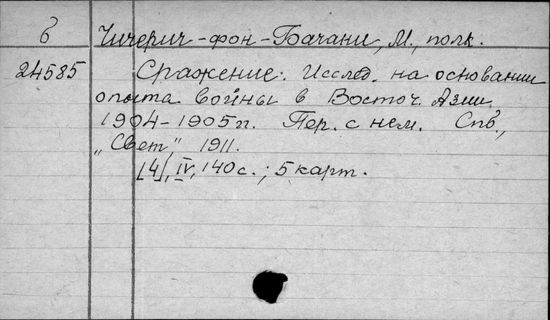 б Чичерич-фон-Бачани, М., полк.
24585 Сражение. Исслед. на основании
опыта войны в Восточ. Азии
1904-1905гг. Пер. с нем. Спб.,
„Свет" 1911.
[4], IV, 140с.; 5 карт.